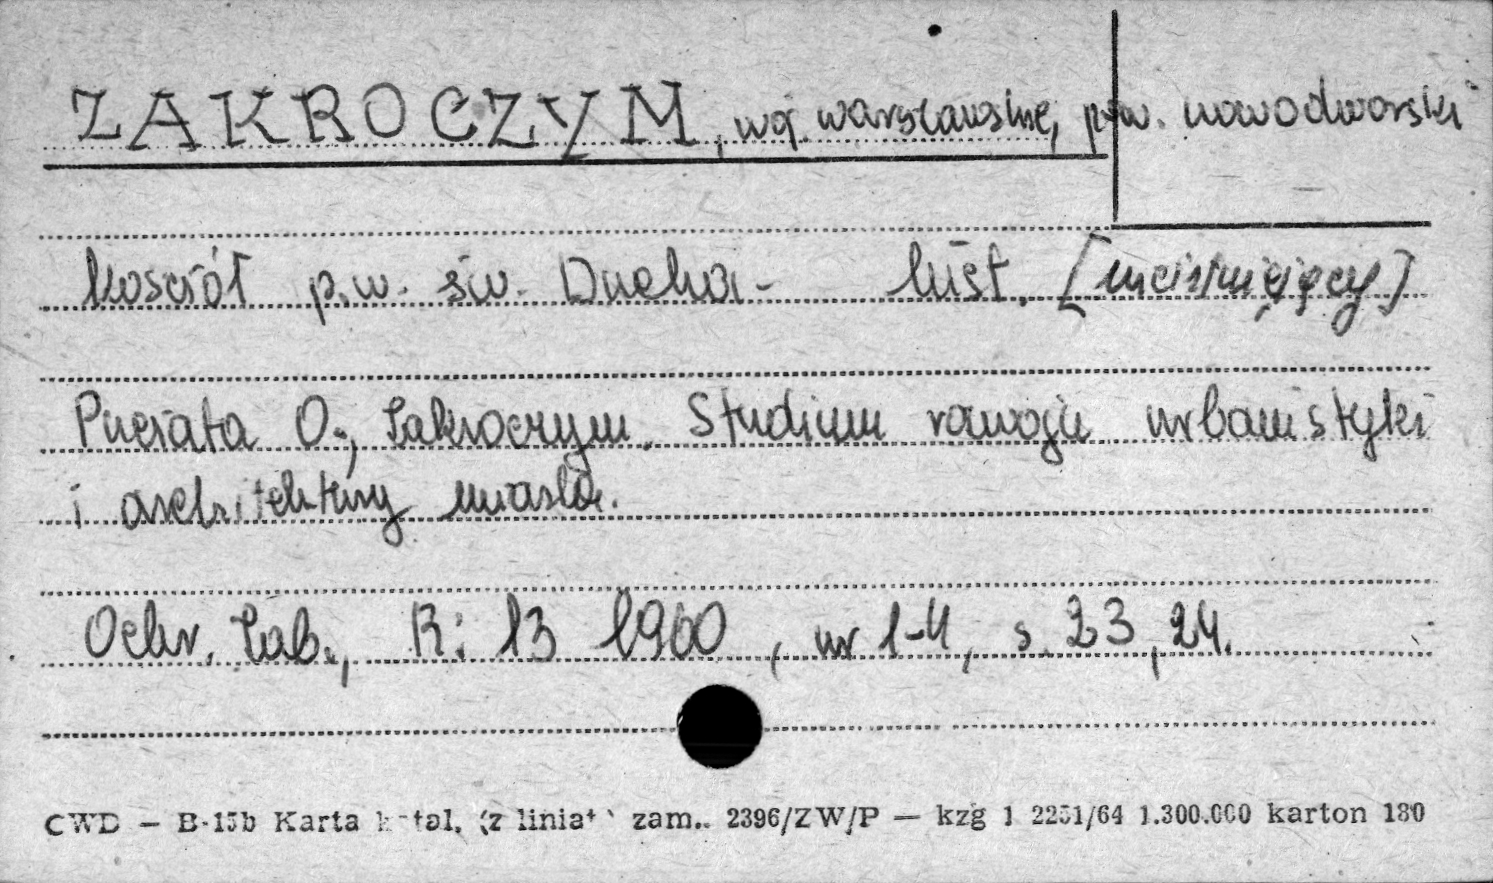 ZAKROCZYM, woj. warszawskie, pow. nowodworski
Kościół p.w. św. Ducha - hist. [nieistniejący]
Puciata O., Zakroczym. Studium rozwoju urbanistyki
i architektury miasta.
Ochr. Zab., R: 13 1960, nr 1-4, s. 23, 24.
CWD — B-15b Karta katal. (z linia zam. 2396/ZW/P — kzg 1 2251/64 1.300.000 karton 180